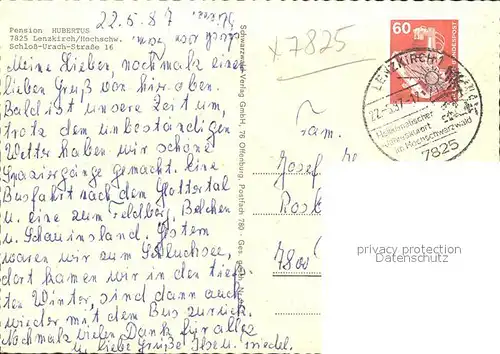 22.5.87
Pension HUBERTUS
7825 Lenzkirch/Hochschw.
Schloß-Urach-Straße 16
Meine Lieben nochmals einen
lieben Gruß von hier oben.
Bald ist unsere Zeit um,
trotz dem unbeständigen
Wetter haben wir schöne
Spaziergänge gemacht. Eine
Busfahrt nach dem Glottertal
u. eine zum Feldberg, Belchen
u. Schauinsland. Gestern
waren wir zum Schluchsee,
dort kamen wir in den tief-
sten Winter, sind dann auch
wieder mit dem Bus zurück.
Nochmals vielen Dank für alles
u. liebe Grüße Ilse u. Friedel
Schwarzwald-Verlag GmbH, 76 Offenburg, Postfach 780 - Ges. gesch.
x 7825
60
BUNDESPOST
LENZKIRCH 1
22.-5.87-17
Heilklimatischer
Kneippkurort
im Hochschwarzwald
7825
Fam.
Josef
7800
privacy protection
Datenschutz